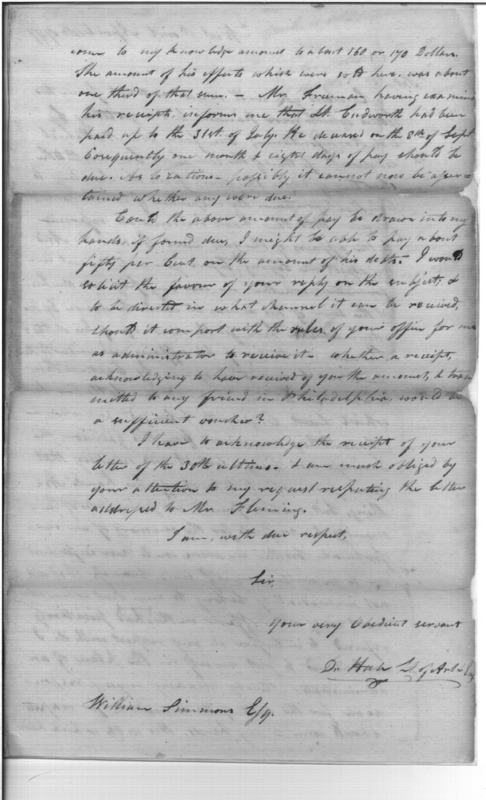 come to my knowledge amount to about 160 or 170 Dollars.
The amount of his effects which were sold here, was about
one third of that sum. – Mr. Freeman having examined
his receipts, informs me that Lt. Cudworth had been
paid up to the 31st. of July. He deceased on the 8th of Sept
Consequently one month & eight days of pay should be
due. As to rations – possibly it cannot now be ascer-
tained whether any were due.
Could the above amount of pay be drawn into my
hands, if found due, I might be able to pay about
fifty per Cent. on the amount of his debts. I would
solicit the favour of your reply on the subject, &
to be directed in what channel it can be received,
should it comport with the rules of your office for me
as administrator to receive it – whether a receipt,
acknowledging to have received of you the amount, & trans
mitted to any friend in Philadelphia would be
a sufficient voucher?
I have to acknowledge the receipt of your
letter of the 30th ultimo. & am much obliged by
your attention to my request respecting the letter
addressed to Mr. Fleming.
I am, with due respect,
Sir,
your very Obedient servant
Lt. of Art
William Simmons Esq.